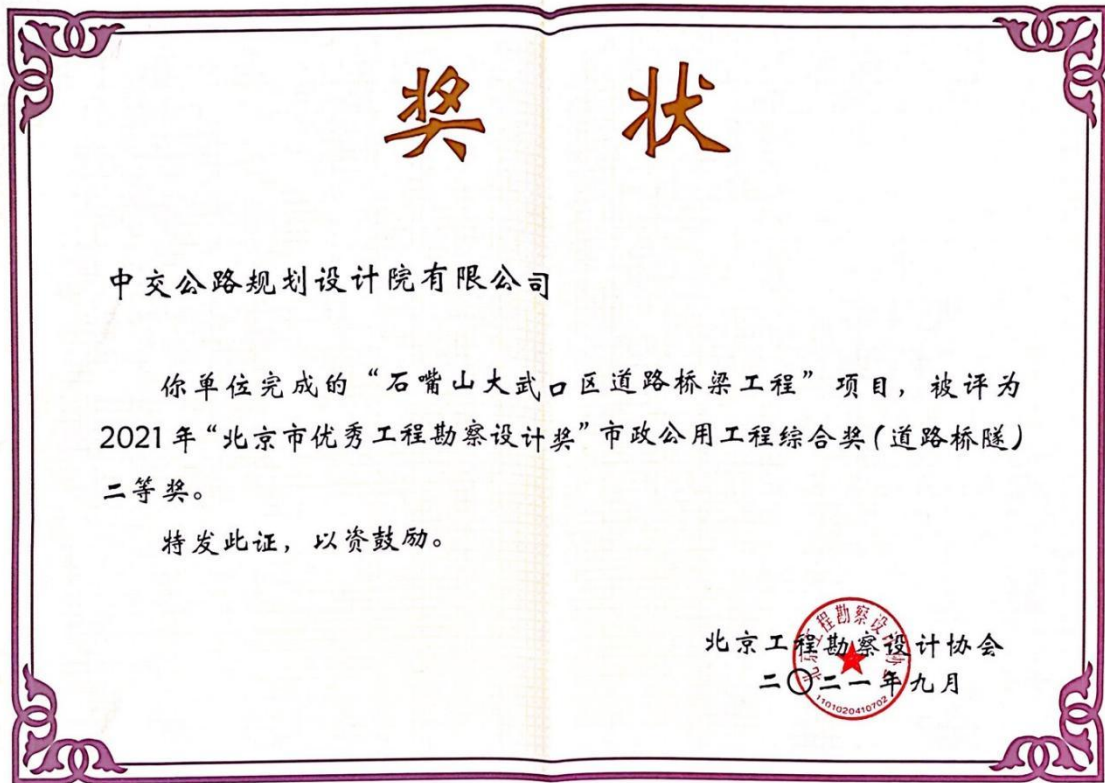 奖 状
中交公路规划设计院有限公司
你单位完成的“石嘴山大武口区道路桥梁工程”项目，被评为
2021年“北京市优秀工程勘察设计奖”市政公用工程综合奖（道路桥隧）
二等奖。
特发此证，以资鼓励。
北京工程勘察设计协会
二〇二一年九月
北京工程勘察设计协会
1101020410702